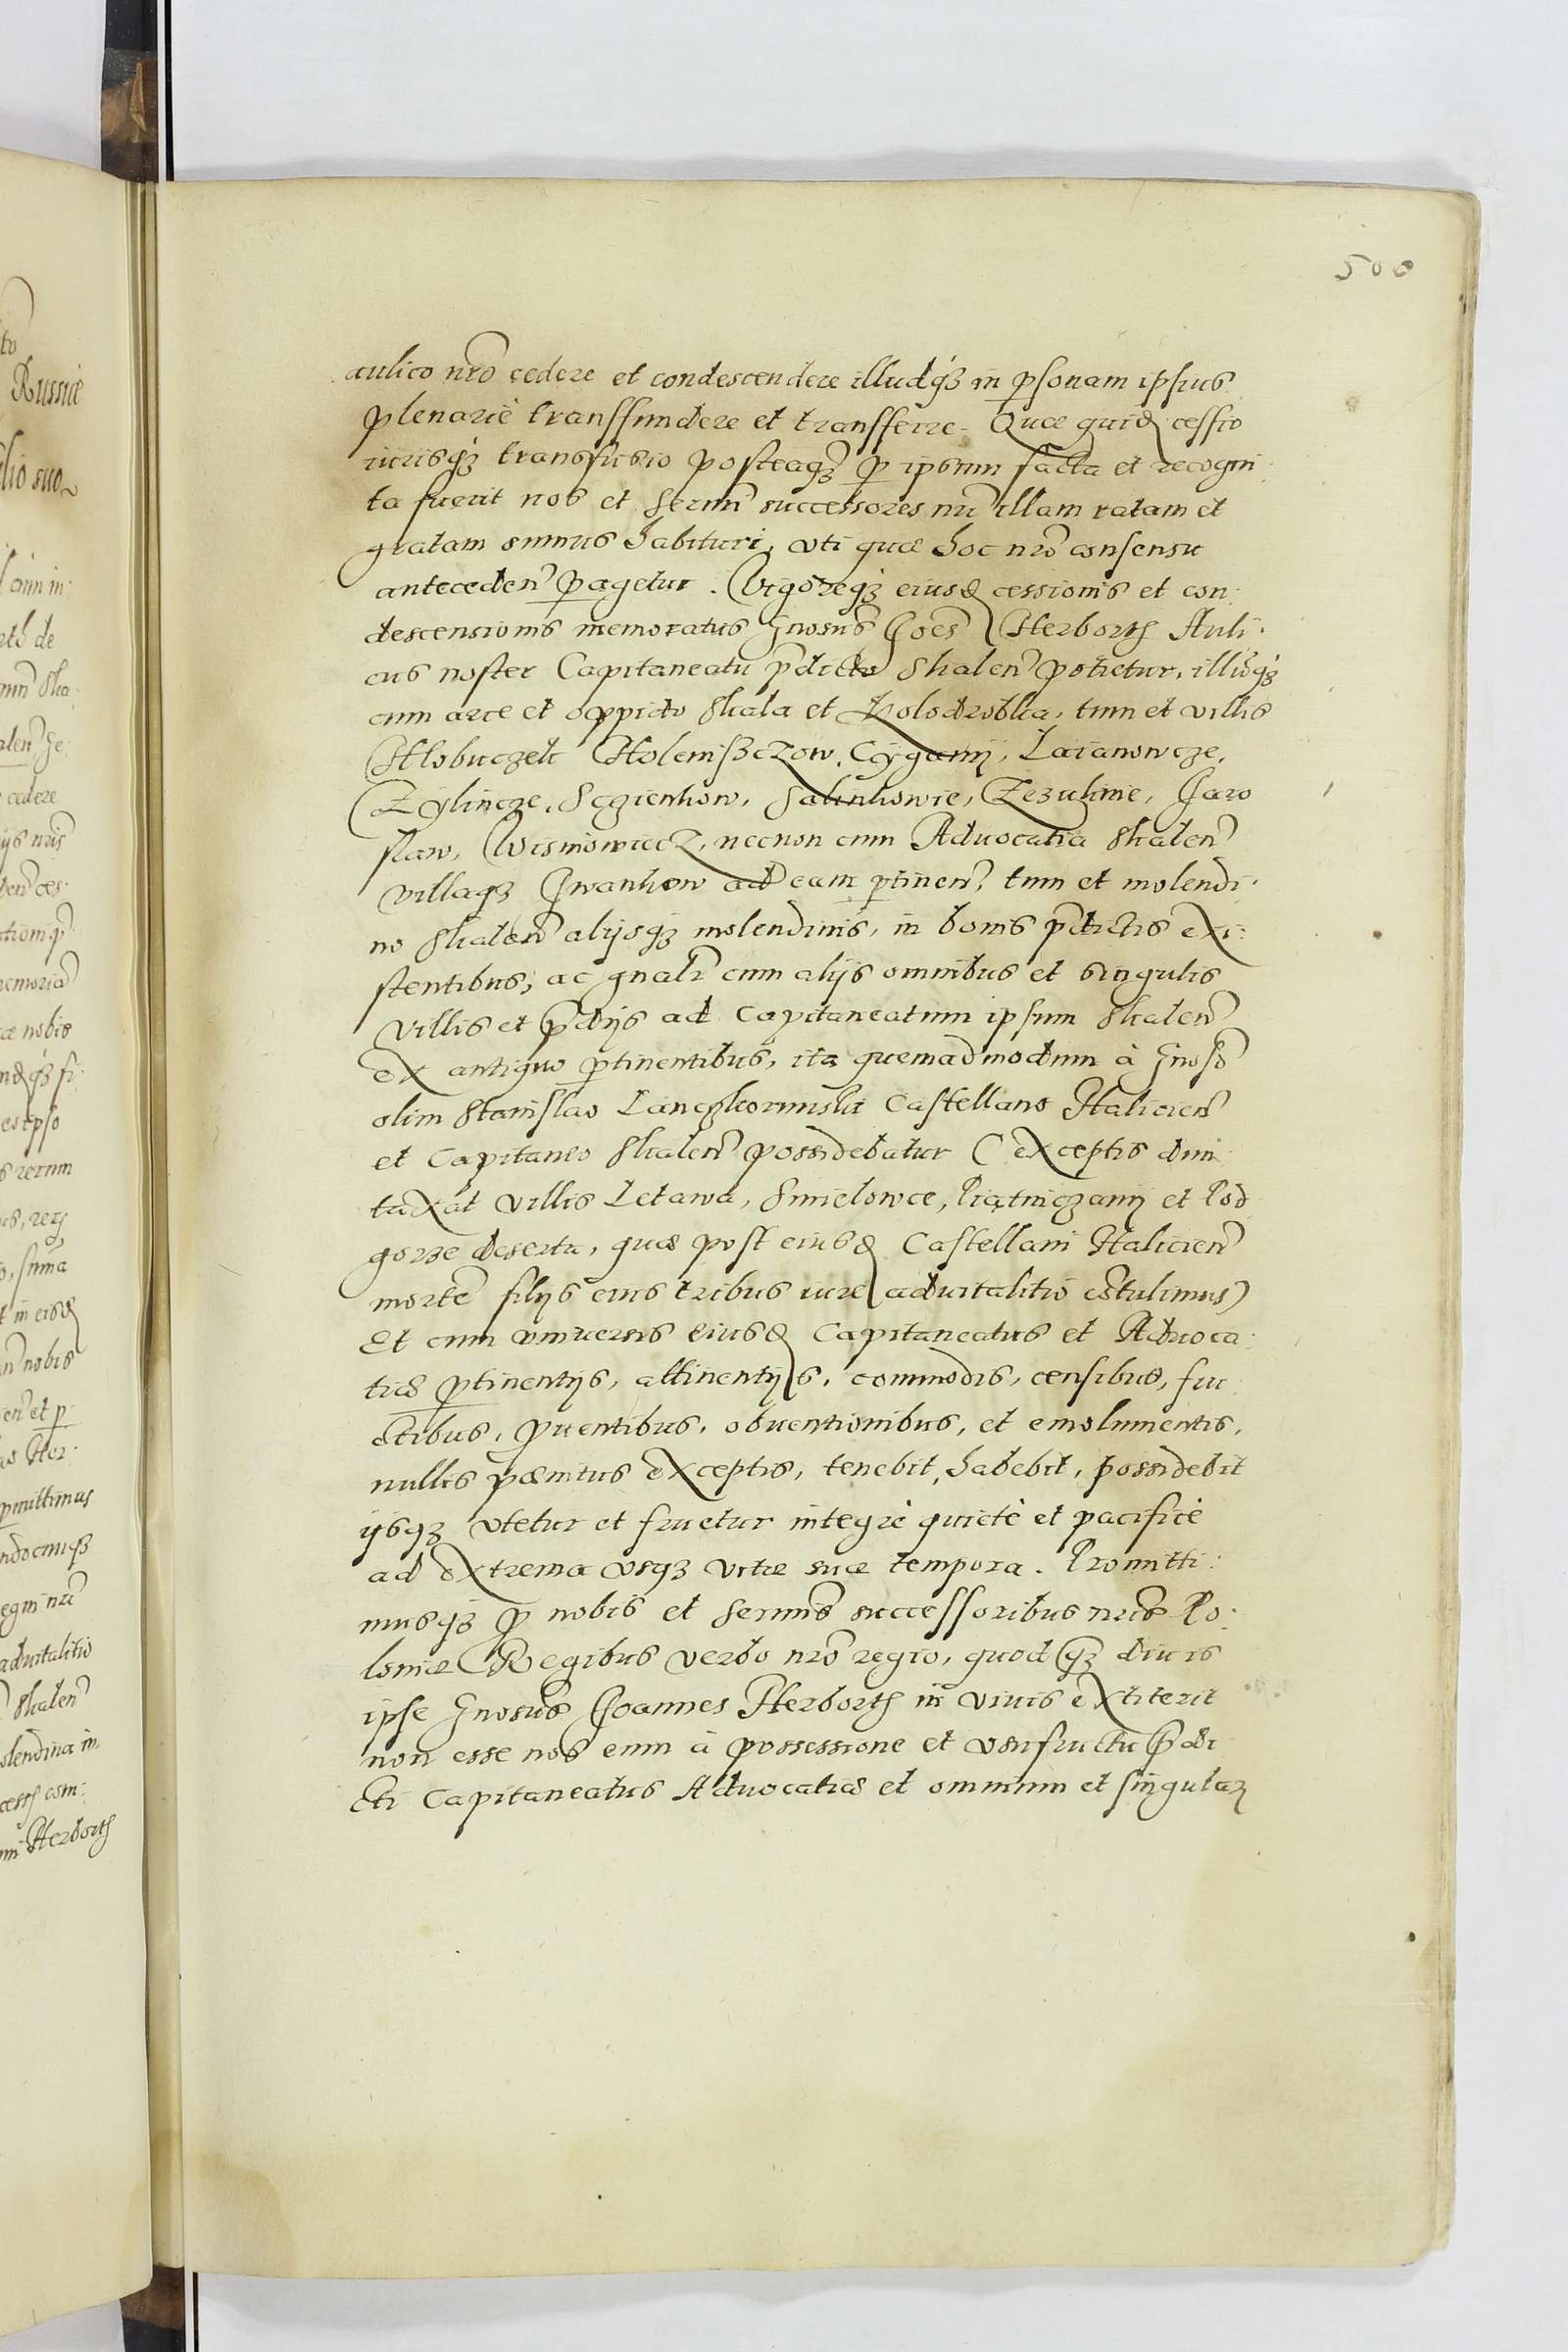 500
aulico nr̃o cedere et condescendere illudq́ꝫ in ꝑsonam ipsius
plenariè transfundere et transferre. Quæ quidẽ cessio
iurisq́ꝫ transfusio posteaqꝫ ꝑ ipsum facta et recogni:
ta fuerit nos et sermi successores nr̃i illam ratam et
gratam sumus habituri, uti quæ hoc nr̃o consensu
anteceden̄ ꝑagetur. Vigoreqꝫ eiusdẽ cessionis et con:
descensionis memoratus Gnosus Joẽs Herborth Auli:
cus noster Capitaneatu p̃dicto Skalen̄ potietur, illiusq́ꝫ
cum arce et oppido Skala et Kolodrobka, tum et villis
Hlobuczek Holenißczow, Cyganÿ, Laianowcze,
Zÿlincze, Sczienkow, Salinkowie, Zezuline, Jaro
slaw, Wisniowiecz, necnon cum Aduocatia Skalen̄
villaqꝫ Jwankow ad eam ꝑtinen̄, tum et molendi:
no Skalen̄ alijsqꝫ molendinis, in bonis p̃dictis exi:
stentibus, ac gnalr̃ cum alijs omnibus et singulis
villis et p̃dijs ad Capitaneatum ipsum Skalen̄
ex antiquo ꝑtinentibus, ita quemadmodum à Gnoso
olim Stanislao Lanczkorunski Castellano Halicien̄
et Capitaneo Skalen̄ possidebatur (exceptis dun
taxat villis Letawa, Smielowce, Piątniczanÿ et Pod
gorze deserta, quas post eiusdẽ Castellani Halicien̄
mortẽ filijs eius tribus iure aduitalitio cõtulimus)
Et cum uniuersis eiusdẽ Capitaneatus et Aduoca:
tiæ ꝑtinentijs, attinentijs, commodis, censibus, fru
ctibus, ꝓuentibus, obuentionibus, et emolumentis,
nullis pænitus exceptis, tenebit, habebit, possidebit
ijsqꝫ utetur et fruetur integrè quietè et pacificè
ad extrema usqꝫ vitæ suæ tempora. Promitti:
musqꝫ ꝓ nobis et sermis successoribus nr̃is Po:
loniæ Regibus verbo nr̃o regio, quod qꝫ diu is
ipse Gnosus Joannes Herborth in viuis extiterit
non esse nos eum à possessione et usufructu p̃di
cti Capitaneatus Aduocatiæ et omnium et singulaꝝ